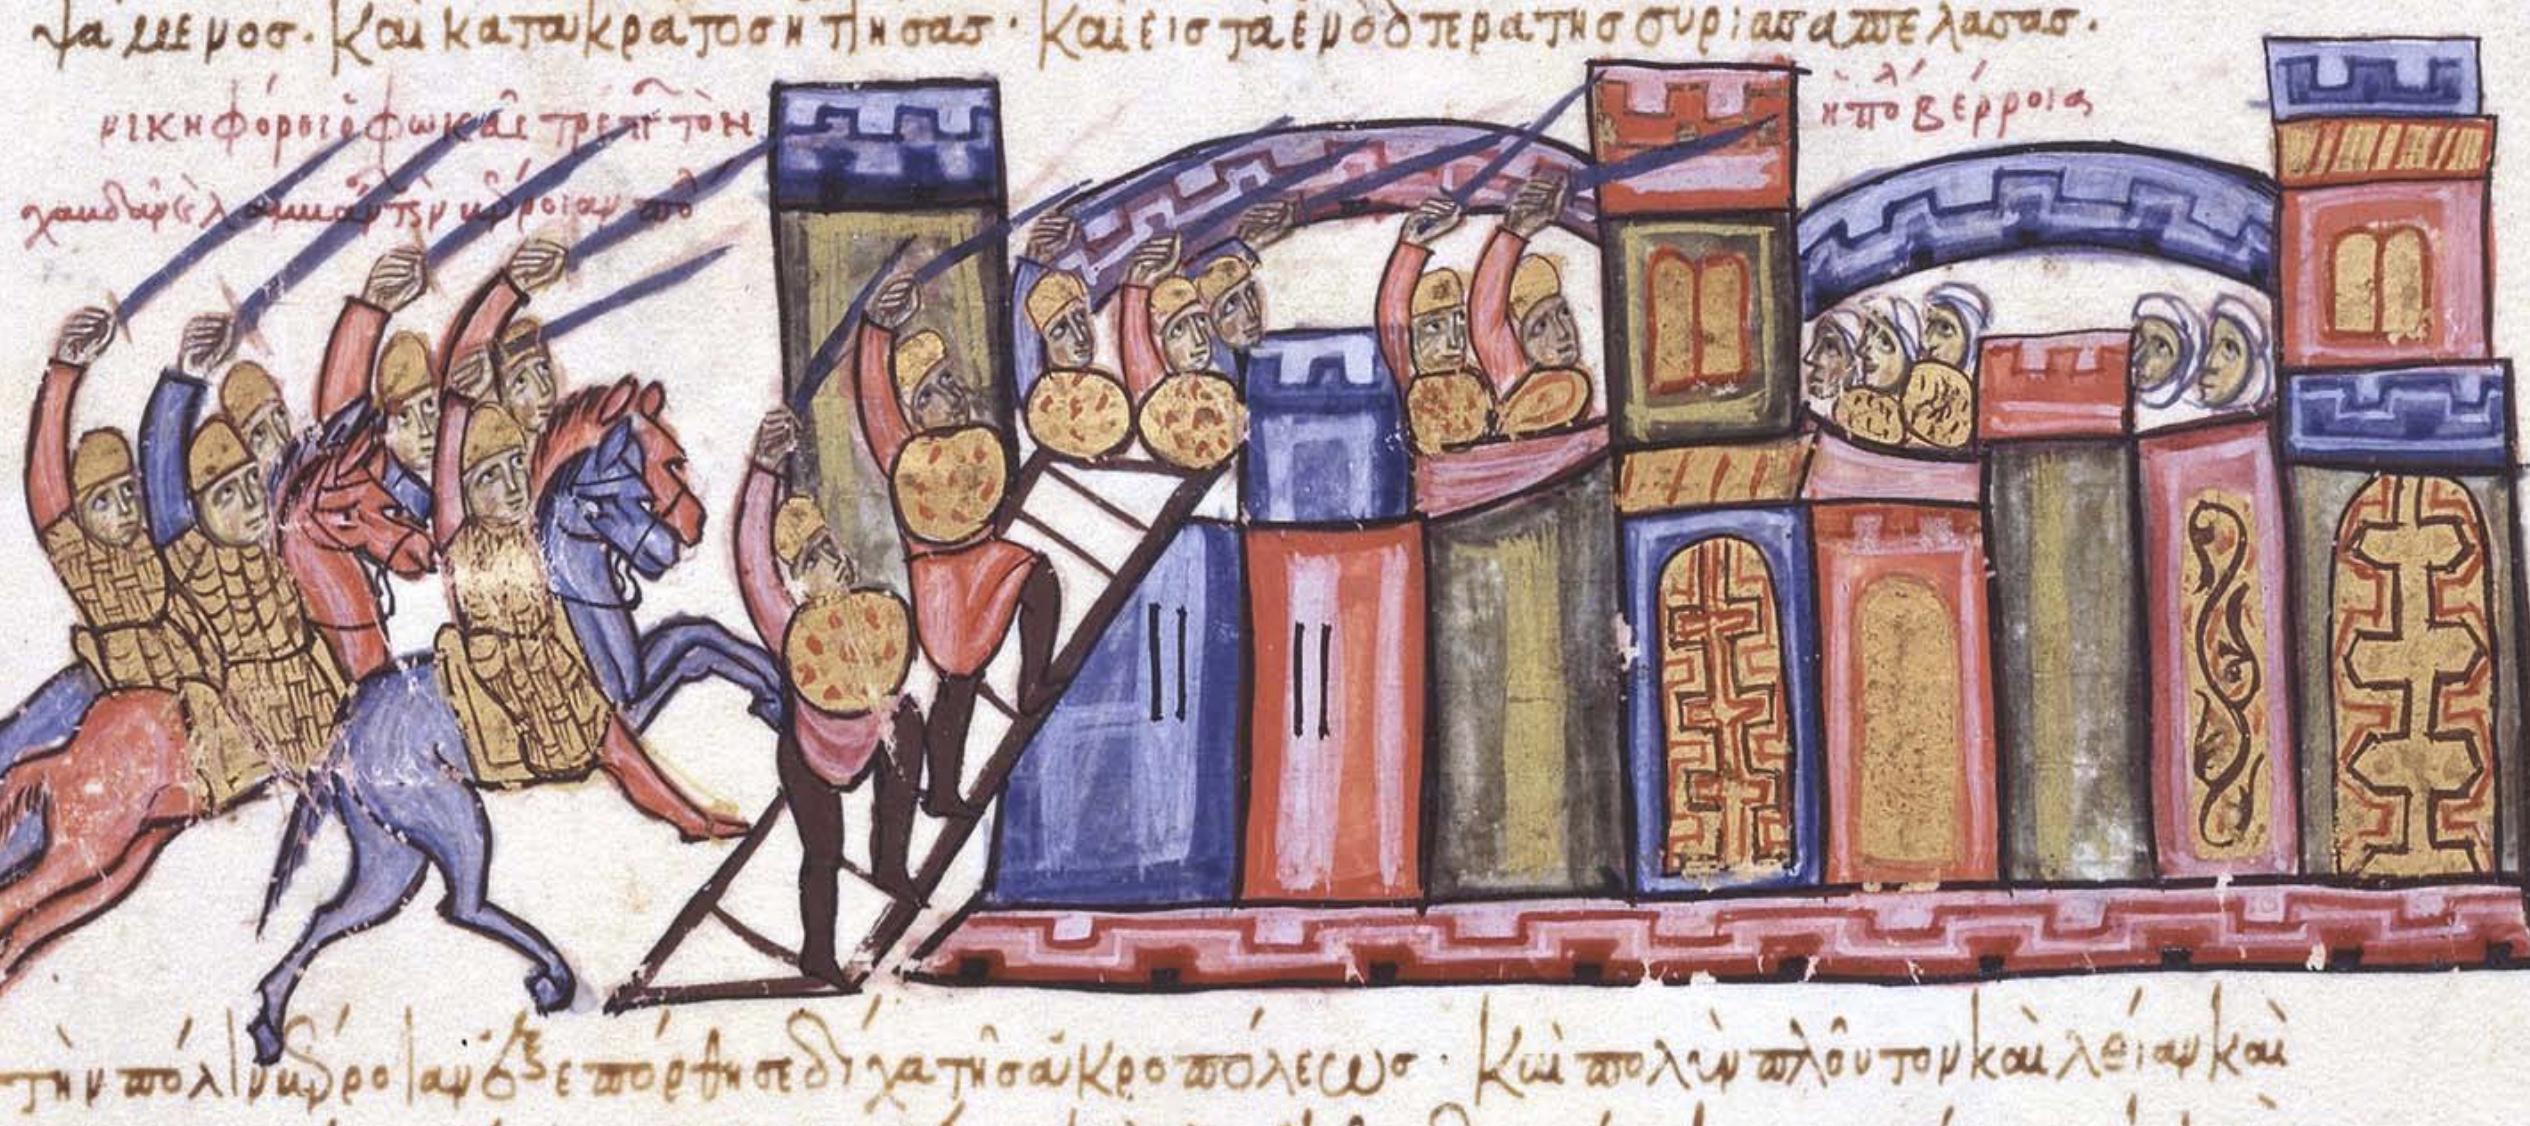 ψάμενος· καὶ κατακράτος ἡττήσας· καὶ εἰς τὰ ἐνδότερα τῆς συρίας ἀπελάσας·
νικηφόρος ὁ φωκᾶς τρέπει τὸν
βέρροιαν
ἡ πόλ βέρροια
τὴν πόλιν βέρροιαν ἐξεπόρθησε δίχα τῆς ἀκροπόλεως· καὶ πολὺν πλοῦτον καὶ λείαν καὶ